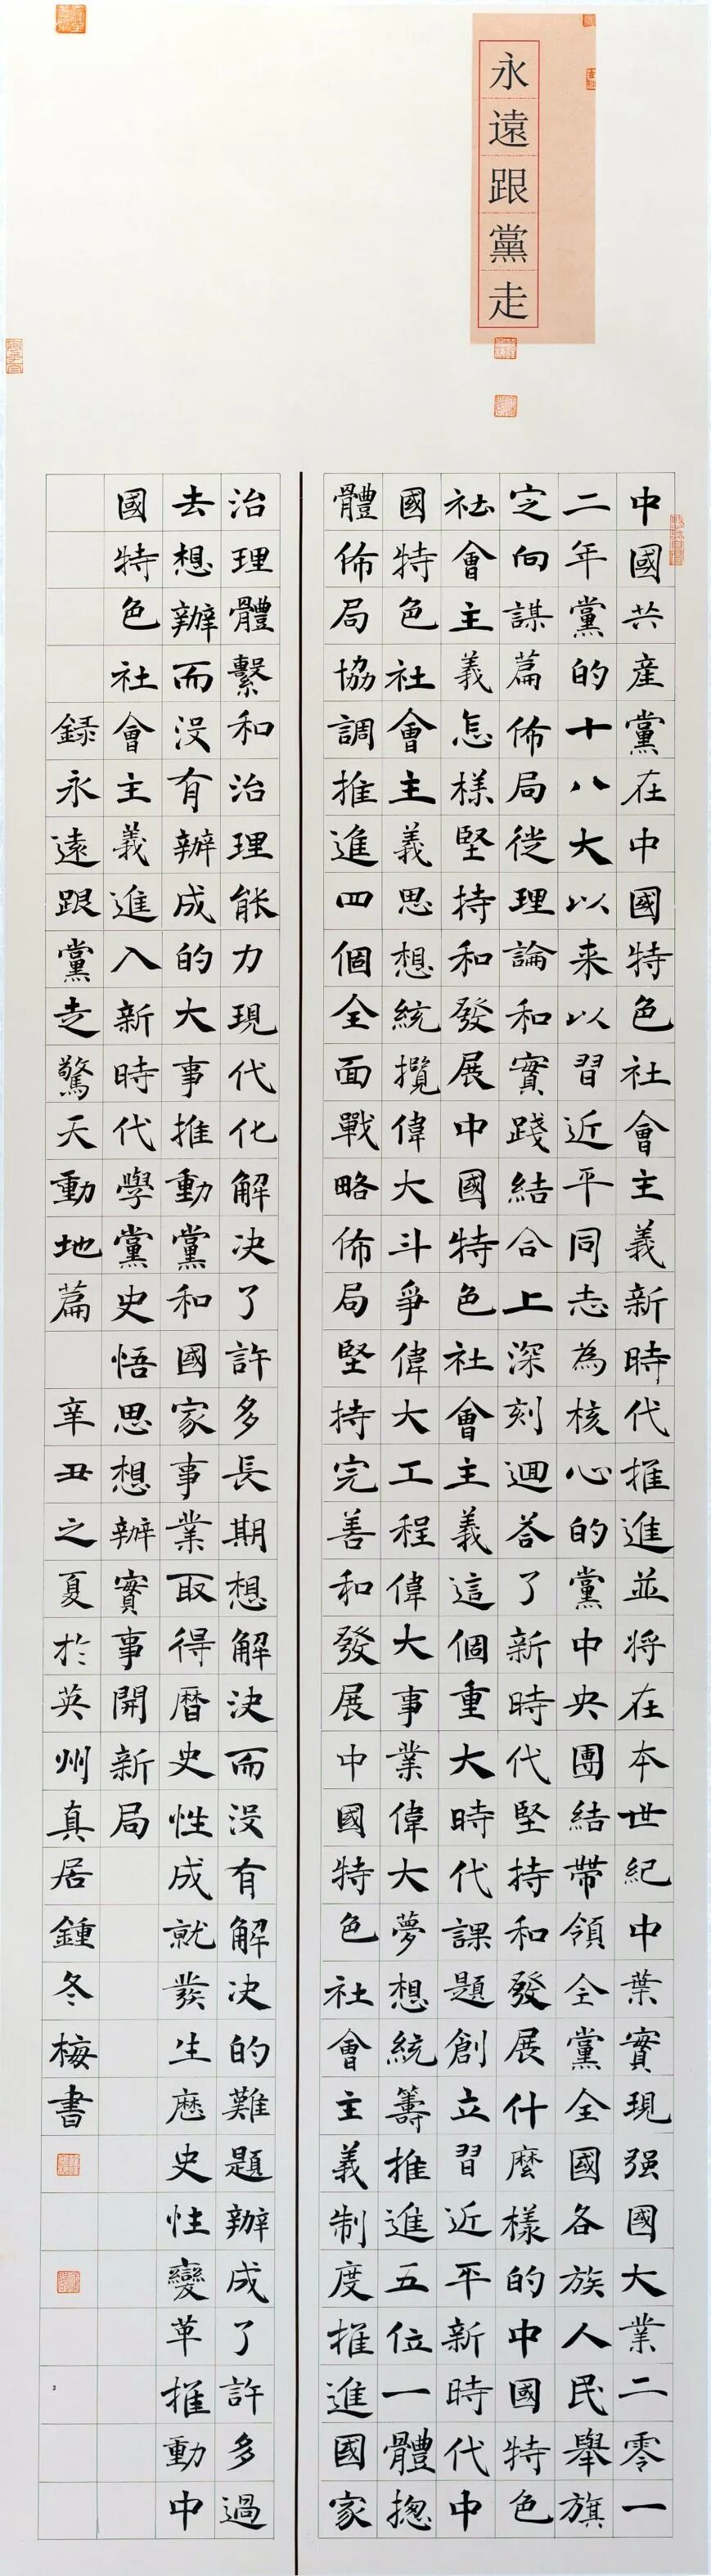 永遠跟黨走
中國共産黨在中國特色社會主義新時代推進並将在本世紀中葉實現强國大業二零一
二年黨的十八大以来以習近平同志為核心的黨中央團結帶領全黨全國各族人民舉旗
定向謀篇佈局從理論和實踐結合上深刻迴答了新時代堅持和發展什麼樣的中國特色
社會主義怎樣堅持和發展中國特色社會主義這個重大時代課題創立習近平新時代中
國特色社會主義思想統攬偉大斗爭偉大工程偉大事業偉大夢想統籌推進五位一體揔
體佈局協調推進四個全面戰略佈局堅持完善和發展中國特色社會主義制度推進國家
治理體繫和治理能力現代化解决了許多長期想解決而没有解决的難題辦成了許多過
去想辦而没有辦成的大事推動黨和國家事業取得曆史性成就發生歷史性變革推動中
國特色社會主義進入新時代學黨史悟思想辦實事開新局
録永遠跟黨走驚天動地篇 辛丑之夏於英州真居鍾冬梅書